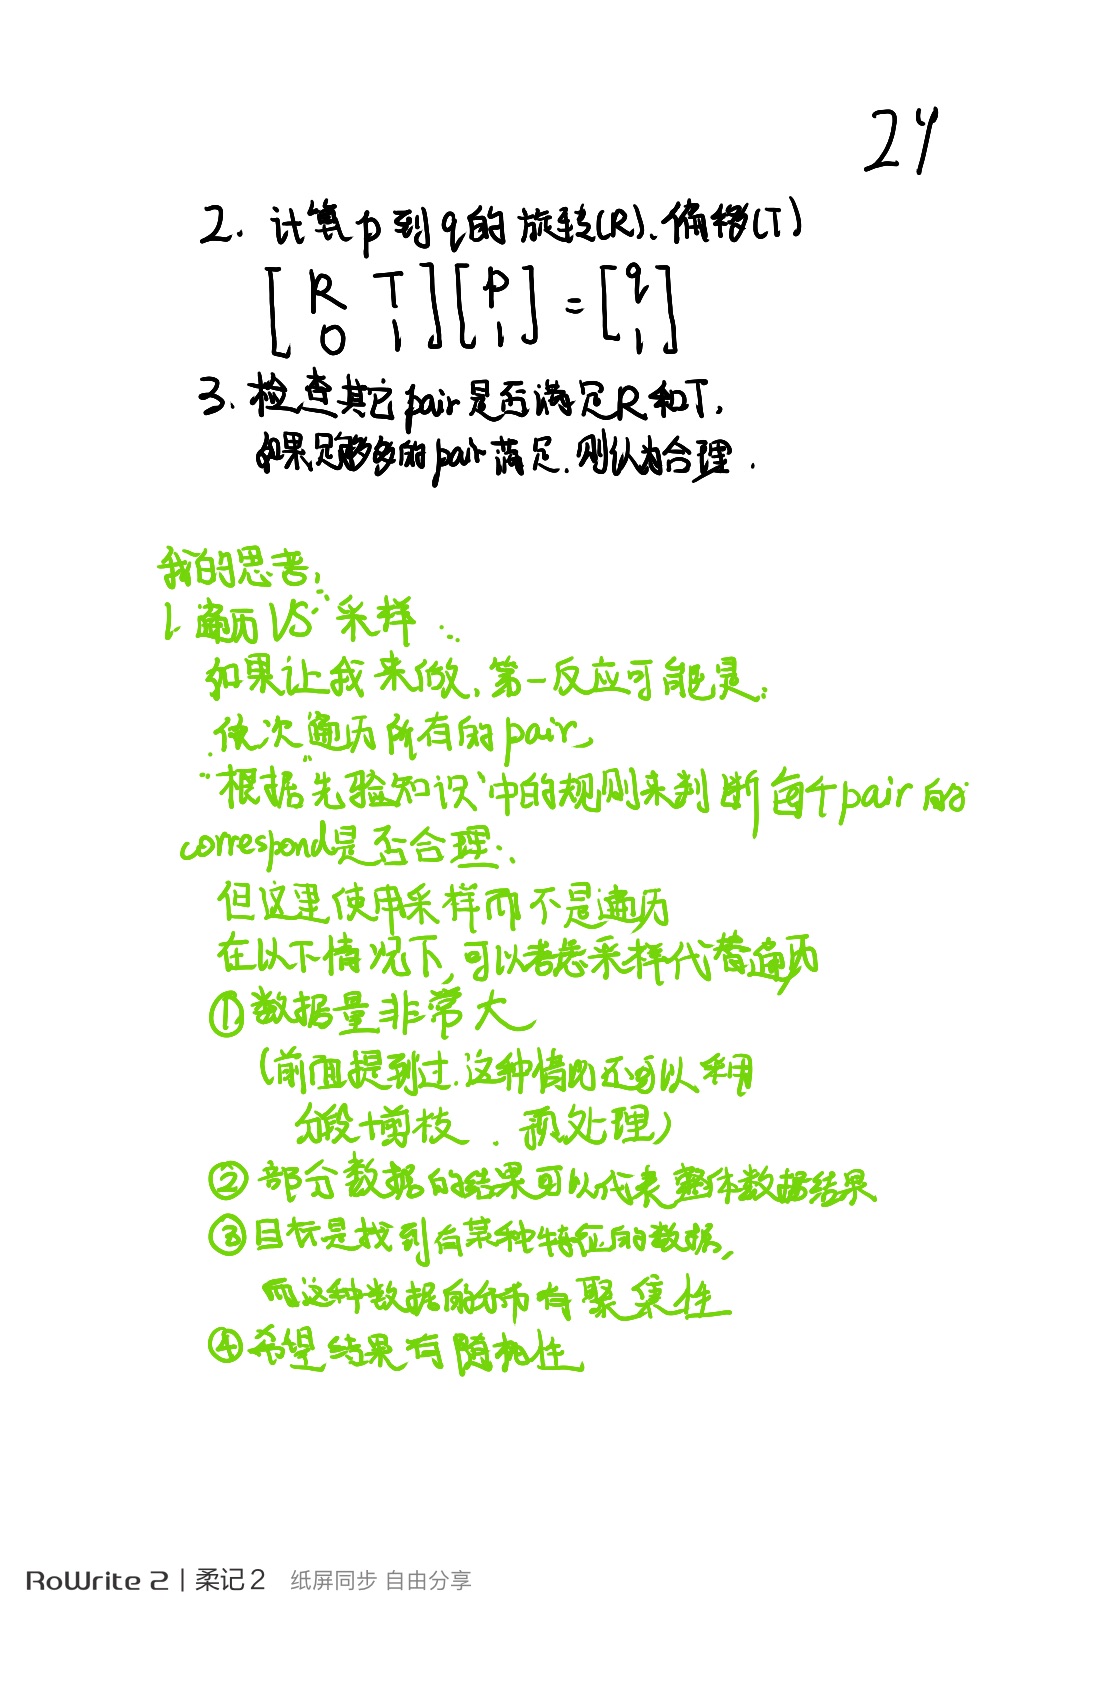 24
2. 计算p到q的旋转(R)、偏移(T)
[R T
0 1] [p
1] = [q
1]
3. 检查其它pair是否满足R和T,
如果足够多的pair满足.则认为合理.
我的思考,
1. 遍历VS采样
如果让我来做,第一反应可能是:
依次遍历所有的pair,
根据"先验知识"中的规则来判断每个pair的
correspond是否合理.
但这里使用采样而不是遍历
在以下情况下,可以考虑采样代替遍历
①数据量非常大
(前面提到过.这种情况还可以利用
分段+剪枝、预处理)
②部分数据的结果可以代表整体数据结果
③目标是找到有某种特征的数据,
而这种数据的分布有聚集性
④希望结果有随机性
RoWrite 2 | 柔记2 纸屏同步 自由分享